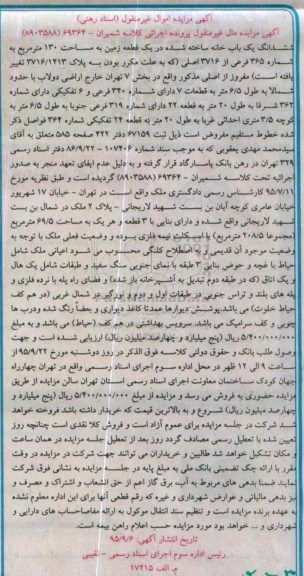 آگهی مزایده اموال غیرمنقول (اسناد رهنی)
آگهی مزایده مال غیرمنقول پرونده اجرائی کلاسه شمیران – ۶۹۳۶۴ (۸۹۰۳۵۸۸)
ششدانگ یک باب خانه ساخته شده در یک قطعه زمین به مساحت ۱۳۰ مترمربع به
شماره ۳۶۵ فرعی از ۳۷۱۶ اصلی (که به علت مکرر بودن به پلاک ۳۷۱۶/۱۴۱۳ تغییر
یافته است) مفروز از اصلی مذکور واقع در بخش ۷ تهران خارج اراضی دولاب با حدود
شمالا به طول ۶/۵ متر به قطعات ۷ دارای شماره ۳۴۰ فرعی و ۶ تفکیکی دارای شماره
۳۶۲ شرقا به طول ۲۰ متر به قطعه ۲۲ دارای شماره ۳۱۹ فرعی جنوبا به طول ۶/۵ متر به
کوچه ۳/۵ متری احداثی غربا به طول ۲۰ متر به قطعه ۲۴ تفکیکی شماره ۳۶۴ فواصل ذکر
شده خطوط مستقیم مفروض است ذیل ثبت ۶۷۱۵۹ دفتر ۴۲۲ صفحه ۵۸۵ متعلق به آقای
سیدمحمد مهدی یعقوبی که به موجب سند شماره ۱۰۷۴۰۶ – ۸۶/۹/۲۲ دفتر اسناد رسمی
۳۲۹ تهران در رهن بانک پاسارگاد قرار گرفته و به دلیل عدم ایفای تعهد منجر به صدور
اجرائیه تحت کلاسه شمیران – ۶۹۳۶۴ (۸۹۰۳۵۸۸) گردیده است و طبق نظریه مورخ
۹۵/۷/۱۱ کارشناس رسمی دادگستری ملک واقع است در تهران – خیابان ۱۷ شهریور
خیابان عامری کوچه آبان بن بست شهید لاریجانی – پلاک ۲ ملک در شمال بن بست
شهید لاریجانی واقع شده و دارای بنایی با ۳ قطعه و هر یک به مساحت ۶۹/۵ مترمربع
(مجموعا ۲۰۸/۵ مترمربع) با اسکلت نیمه فلزی بوده و وضعیت فعلی ملک با توجه به
وضعیت موجود آن قدیمی و به اصطلاح کلنگی محسوب می شود اعیانی ملک شامل
حیاط با غچه و حوض بنایی ۳ طبقه با نمای جنوبی سنگ سفید و طبقات شامل یک هال
و یک اتاق (که در طبقه دوم تبدیل به آشپزخانه باز شده) و فضای راه پله با نرده فلزی و
پله های بلند و تراس جنوبی در طبقات اول و دوم و نورگیر در شمال غربی (در هم کف
حیاط خلوت) می باشد پوشش دیوارها عمدتا کاغذ دیواری و بعضاً رنگ شده ودرب ها
چوبی و کف سرامیک می باشد. سرویس بهداشتی در هم کف (حیاط) می باشد و به مبلغ
۵/۴۰۰/۰۰۰/۰۰۰ ریال (پنج میلیارد و چهارصد میلیون ریال) ارزیابی شده است و جهت
وصول طلب بانک و حقوق دولتی کلاسه فوق الذکر در روز دوشنبه مورخ ۹۵/۹/۲۲ از
ساعت ۹ الی ۱۲ ظهر در محل اداره سوم اجرای اسناد رسمی واقع در تهران چهارراه
جهان کودک ساختمان معاونت اجرای اسناد رسمی استان تهران سالن مزایده از طریق
مزایده حضوری به فروش می رسد و مزایده از مبلغ ۵/۴۰۰/۰۰۰/۰۰۰ ریال (پنج میلیارد و
چهارصد میلیون ریال) شروع و به بالاترین قیمت که خریدار داشته باشد فروخته خواهد
شد شرکت در جلسه مزایده برای عموم آزاد است و فروش کلا نقدی است چنانچه روز
تعیین شده با تعطیل رسمی مصادف گردد روز بعد از تعطیل جلسه مزایده در همان ساعت
و مکان تشکیل خواهد شد طالبین و خریداران می توانند جهت شرکت در مزایده در وقت
مقرر با ارائه چک تضمینی بانک ملی به مبلغ پایه در جلسه مزایده به نشانی فوق شرکت
نمایند ضمنا بدهی های مربوط به آب، برق گاز اعم از حق انشعاب و اشتراک و مصرف و
نیز بدهی مالیاتی و عوارض شهرداری و غیره که رقم قطعی آنها برای این اداره معلوم نشده
به عهده برنده مزایده است و تنظیم سند انتقال موکول به ارائه مفاصاحساب های دارایی و
شهرداری و ... خواهد بود مورد مزایده حسب اعلام راهن بیمه است.
تاریخ انتشار آگهی: ۹۵/۹/۶
رئیس اداره سوم اجرای اسناد رسمی – نقیبی
م. الف ۱۷۴۱۵